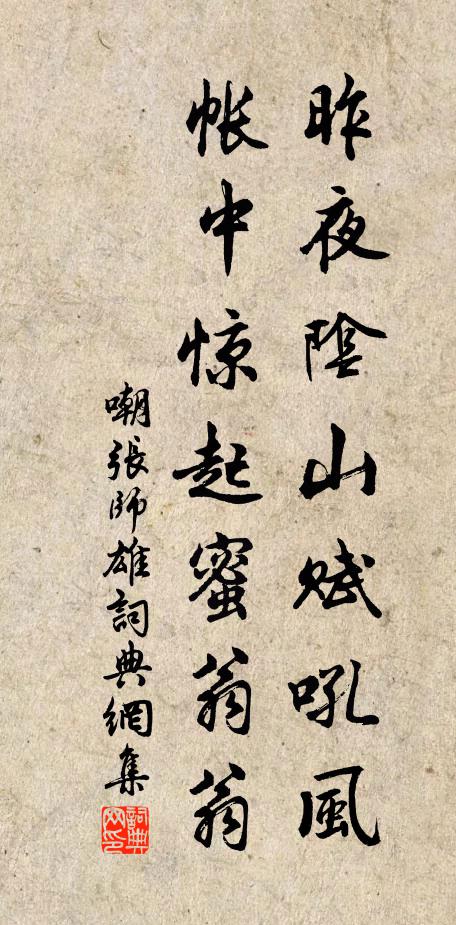 昨夜陰山賊吼風
帳中惊起蜜翁翁
嘲張師雄詞典網集
詞典网印